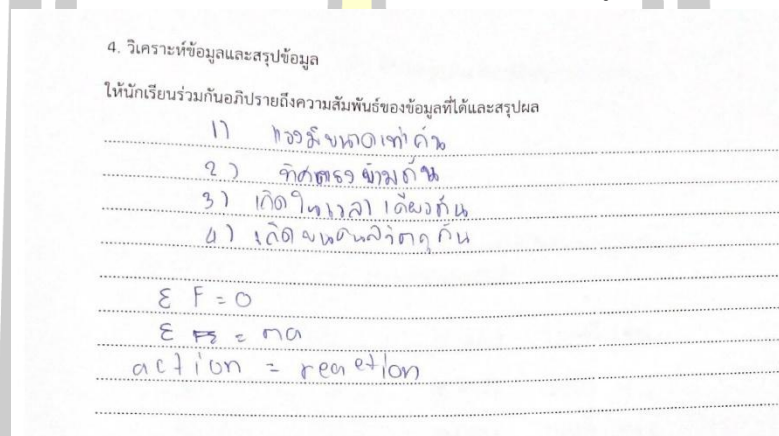 4. วิเคราะห์ข้อมูลและสรุปข้อมูล
ให้นักเรียนร่วมกันอภิปรายถึงความสัมพันธ์ของข้อมูลที่ได้และสรุปผล
1) แรงมีขนาดเท่ากัน
2) ทิศตรงข้ามกัน
3) เกิดในเวลาเดียวกัน
4) เกิดบนคนละวัตถุกัน
Σ F = 0
Σ F = ma
action = reaction